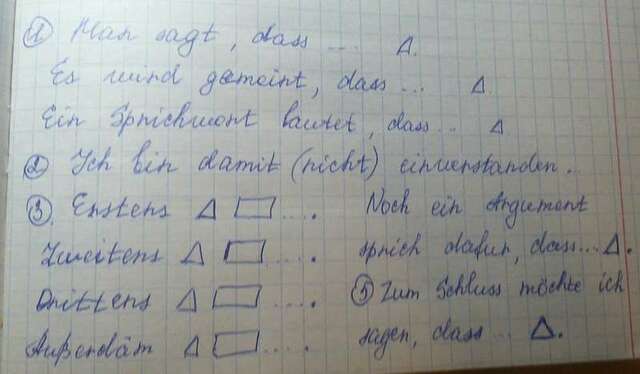 ① Man sagt, dass ... △.
Es wird gemeint, dass ... △.
Ein Sprichwort lautet, dass ... △
② Ich bin damit (nicht) einverstanden.
③ Erstens △ ▭ ....
Zweitens △ ▭ ....
Drittens △ ▭ ....
Außerdäm △ ▭ ....
Noch ein Argument
sprich dafür, dass ... △.
⑤ Zum Schluss möchte ich
sagen, dass ... △.